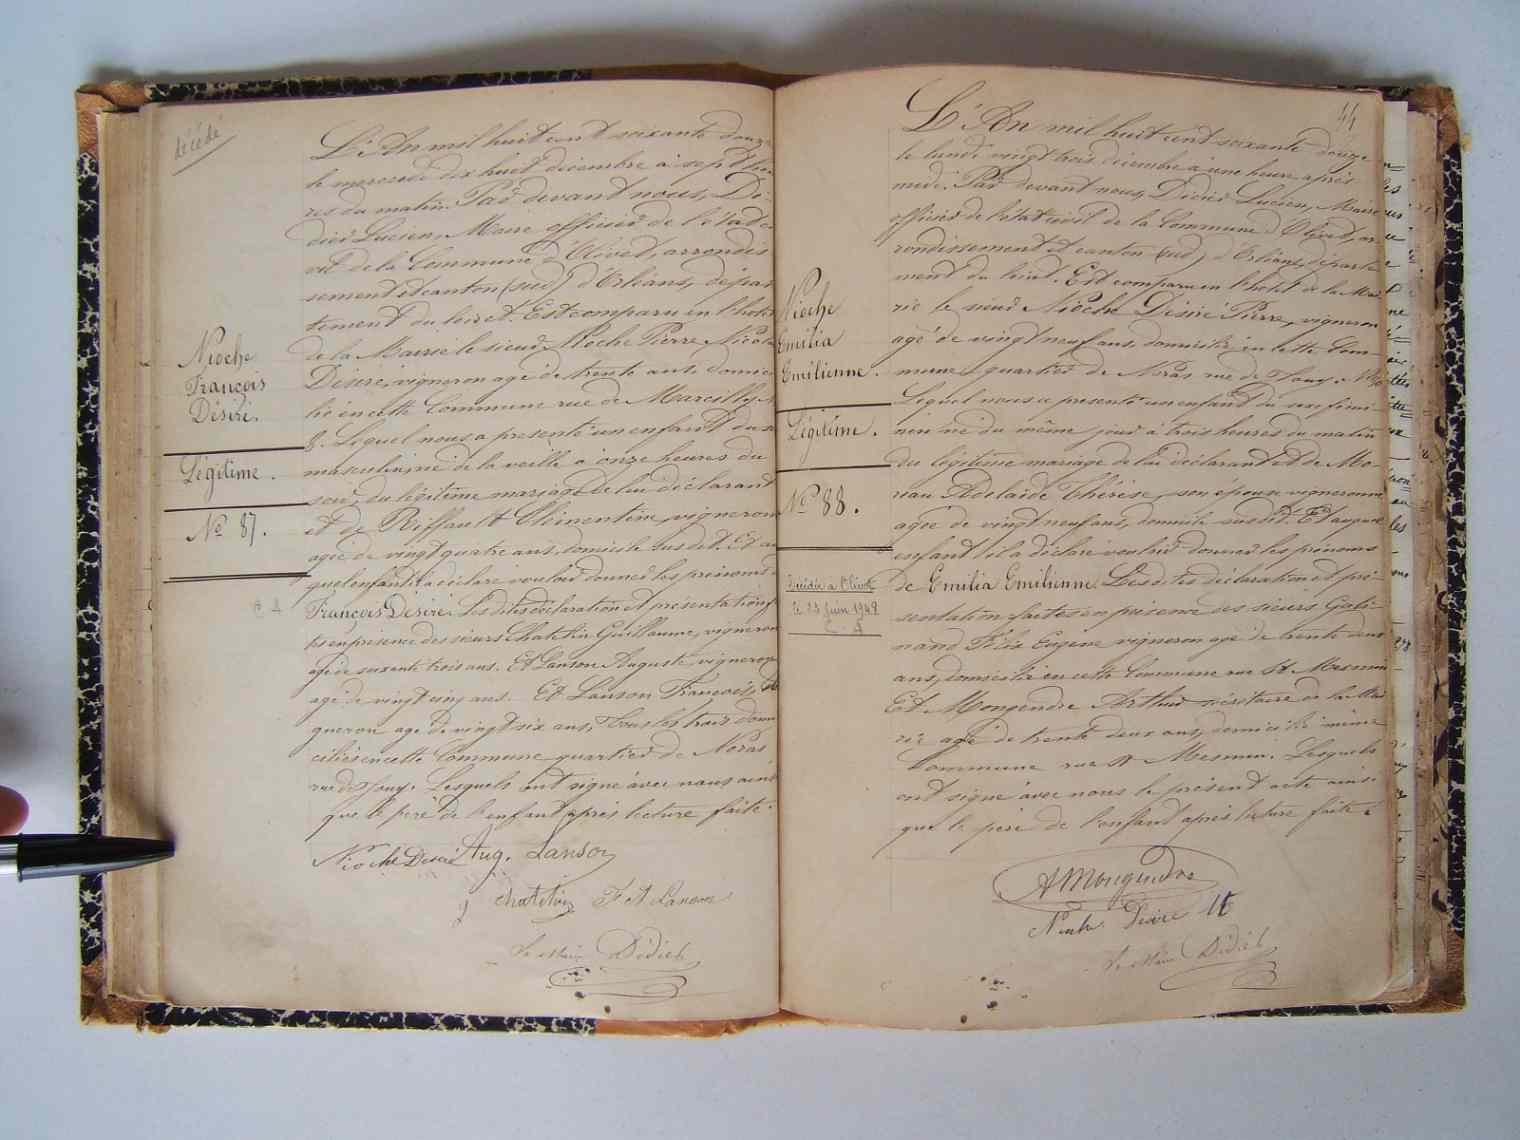 décédé
Nioche
François
Désiré.
Légitime.
No 87.
L'An mil huit cent soixante douze
le mercredi dix huit décembre à sept heu
res du matin. Par devant nous, Di-
dier Lucien, Maire officier de l'état ci
vil de la Commune d'Olivet, arrondis
sement et canton (sud) d'Orléans, dépar
tement du loiret. Est comparu en l'hotel
de la Mairie le sieur Nioche Pierre Nicolas
Désiré, vigneron agé de trente ans, domici
lié en cette Commune rue de Marcilly No
8. Lequel nous a presenté un enfant du sexe
masculin, né de la veille à onze heures du
soir, du légitime mariage de lui déclarant
et de Riffault Clémentine, vigneronne
agée de vingt quatre ans, domicile susdit. Et au
quel enfant il a déclaré vouloir donner les prénoms de
François Désiré. Les dites déclaration et présentation fai
tes en présence des sieurs Chatelin Guillaume, vigneron
agé de soixante trois ans. Et Lanson Auguste, vigneron
agé de vingt cinq ans. Et Lanson François, vi
gneron agé de vingt six ans, tous les trois domi
ciliés en cette Commune quartier de Noras
rue de Jouy. Lesquels ont signé avec nous ainsi
que le père de l'enfant après lecture faite.
Nioche Désiré Aug. Lanson
Chatelin F A Lanson
Le Maire Didier
44
Nioche
Emilia
Emilienne.
Légitime.
No 88.
Décédée à Olivet
le 23 Juin 1948
L'An mil huit cent soixante douze
le lundi vingt trois décembre à une heure après
midi. Par devant nous, Didier Lucien, Maire
officier de l'état civil de la Commune d'Olivet, ar
rondissement et canton (sud) d'Orléans, départe
ment du loiret. Est comparu en l'hotel de la Mai
rie le sieur Nioche Désiré Pierre, vigneron
agé de vingt neuf ans, domicilié en cette Com-
mune quartier de Noras rue de Jouy.
Lequel nous a presenté un enfant du sexe fémi-
nin né du même jour à trois heures du matin
du légitime mariage de lui déclarant et de Mo-
reau Adelaïde Thérèse, son épouse vigneronne
agée de vingt neuf ans, domicile susdit. Et auquel
enfant il a déclaré vouloir donner les prénoms
de Emilia Emilienne. Les dites déclaration et pré-
sentation faites en présence des sieurs Gati-
nand Félix Eugène vigneron agé de trente deux
ans, domicilié en cette Commune rue St Mesmin
Et Mongendre Arthur sécrétaire de la Mai
rie agé de trente deux ans, domicilié même
Commune rue St Mesmin. Lesquels
ont signé avec nous le présent acte ainsi
que le père de l'enfant après lecture faite.
A Mongendre
Nioche Désiré
Le Maire Didier